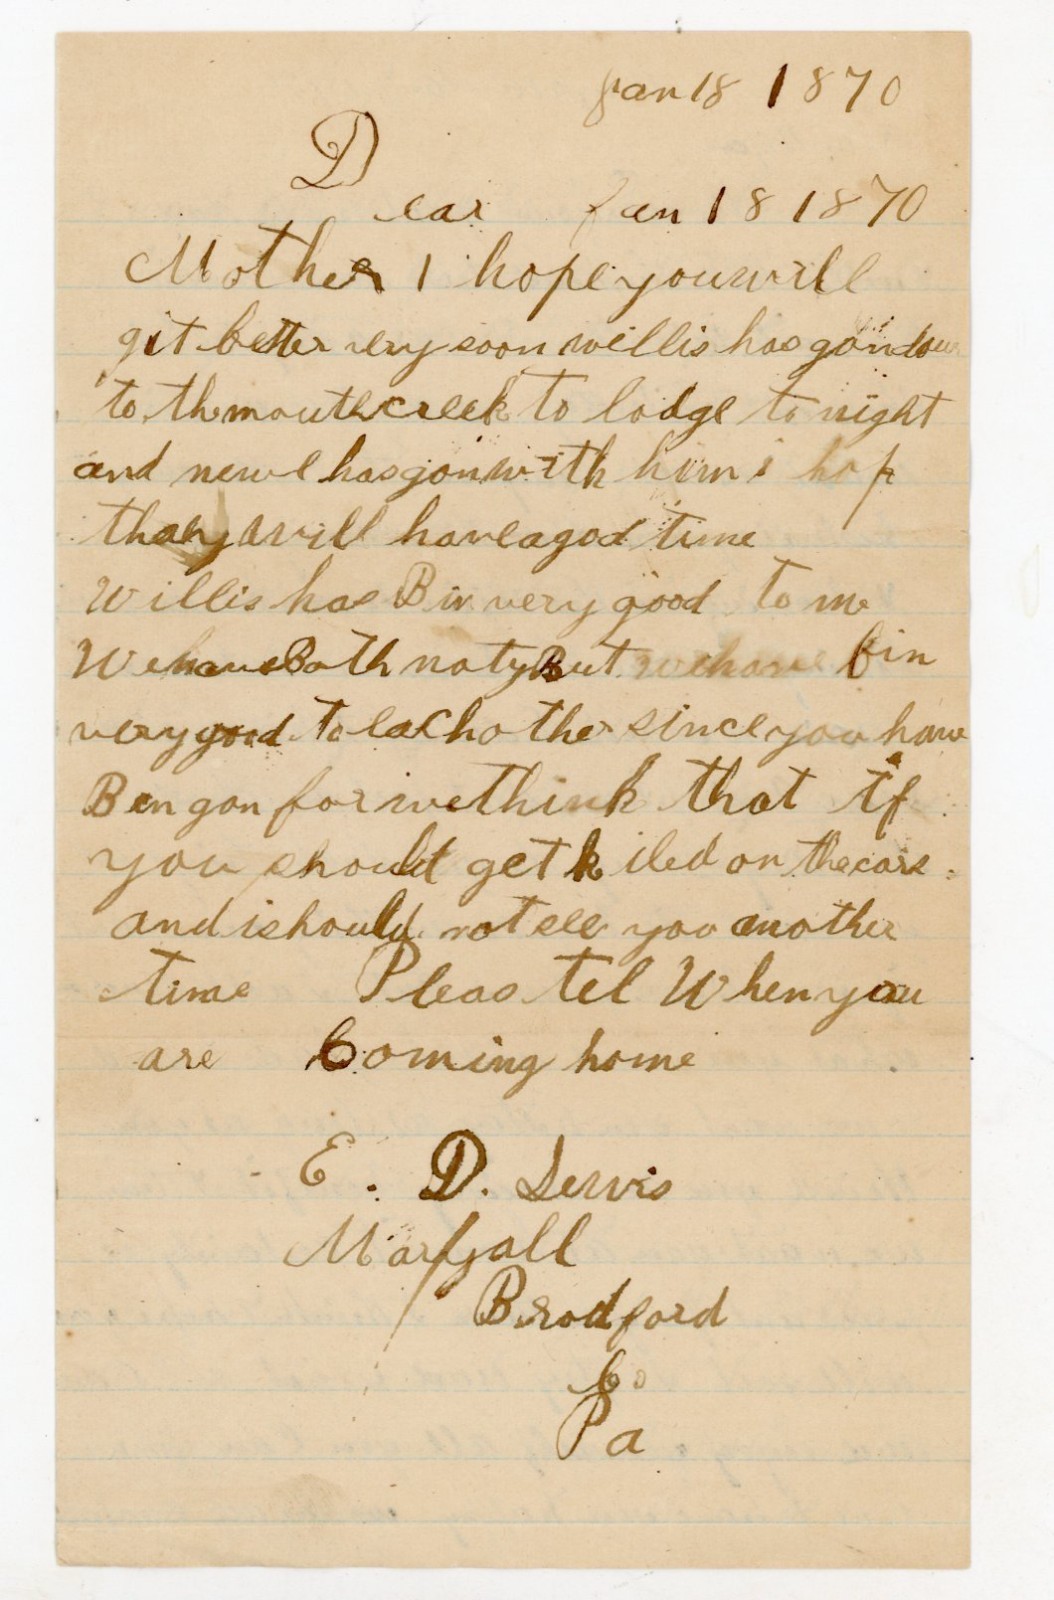 Jan 18 1870
Dear Jan 18 1870
Mother I hope you will
git better very soon willis has gon down
to th mouth creek to lodge to night
and newel has gon with him i hop
thay will have a god time
Willis has Bin very good to me
We have Both noty But we have bin
very good to each other since you have
Ben gon for we think that if
you should get kiled on the cars
and i should not see you another
time Pleas tel When you
are Coming home
E. D. Lewis
Maryall
Bradford
Co
Pa